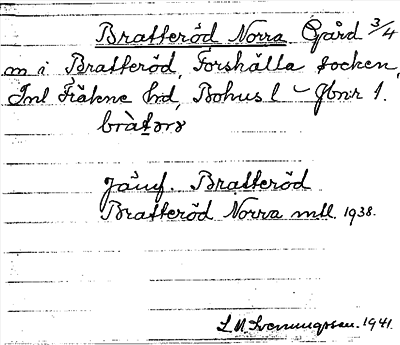 Bratteröd Norra Gård 3/4
m i Bratteröd, Forshälla socken,
Inl Fräkne hrd, Bohus l – Jbnr 1.
Jämf. Bratteröd
Bratteröd Norra mtl. 1938.
1941.